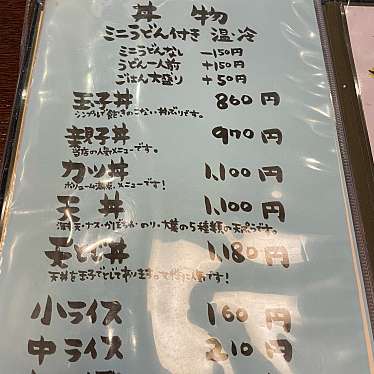 丼物
ミニうどん付き 温冷
ミニうどんなし －150円
うどん一人前 ＋150円
ごはん大盛り ＋50円
玉子丼 860円
シンプルで飽きのこない丼ぶりです。
親子丼 970円
当店の人気メニューです。
カツ丼 1,100円
ボリューム満点、メニューです!
天丼 1,100円
海老天・ナス・かぼちゃ・のり・大葉の5種類の天ぷらです。
天とじ丼 1,180円
天丼を玉子でとじてありますって特に人気です!
小ライス 160円
中ライス 210円